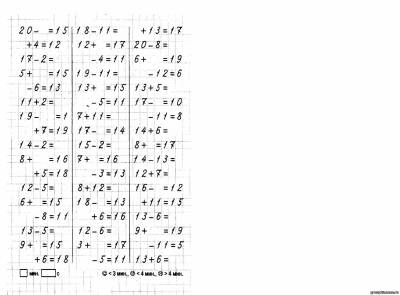 20- =15 18-11= +13=17
+4=12 12+ =17 20-8=
17-2= -4=11 6+ =19
5+ =15 19-11= -12=6
-6=13 13+ =15 13+5=
11+2= -5=11 17- =10
19- =1 7+11= -11=8
+7=19 17- =14 14+6=
14-2= 15-2= 8+ =17
8+ =16 7+ =16 14-13=
+5=18 -3=13 12+7=
12-5= 8+12= 16- =12
6+ =15 18- =13 +11=15
-8=11 +6=16 13-6=
13-5= 12-6= 9+ =19
9+ =15 3+ =17 -11=5
+6=18 -5=11 13+6=
МИН. С < 3 МИН., < 4 МИН., > 4 МИН.